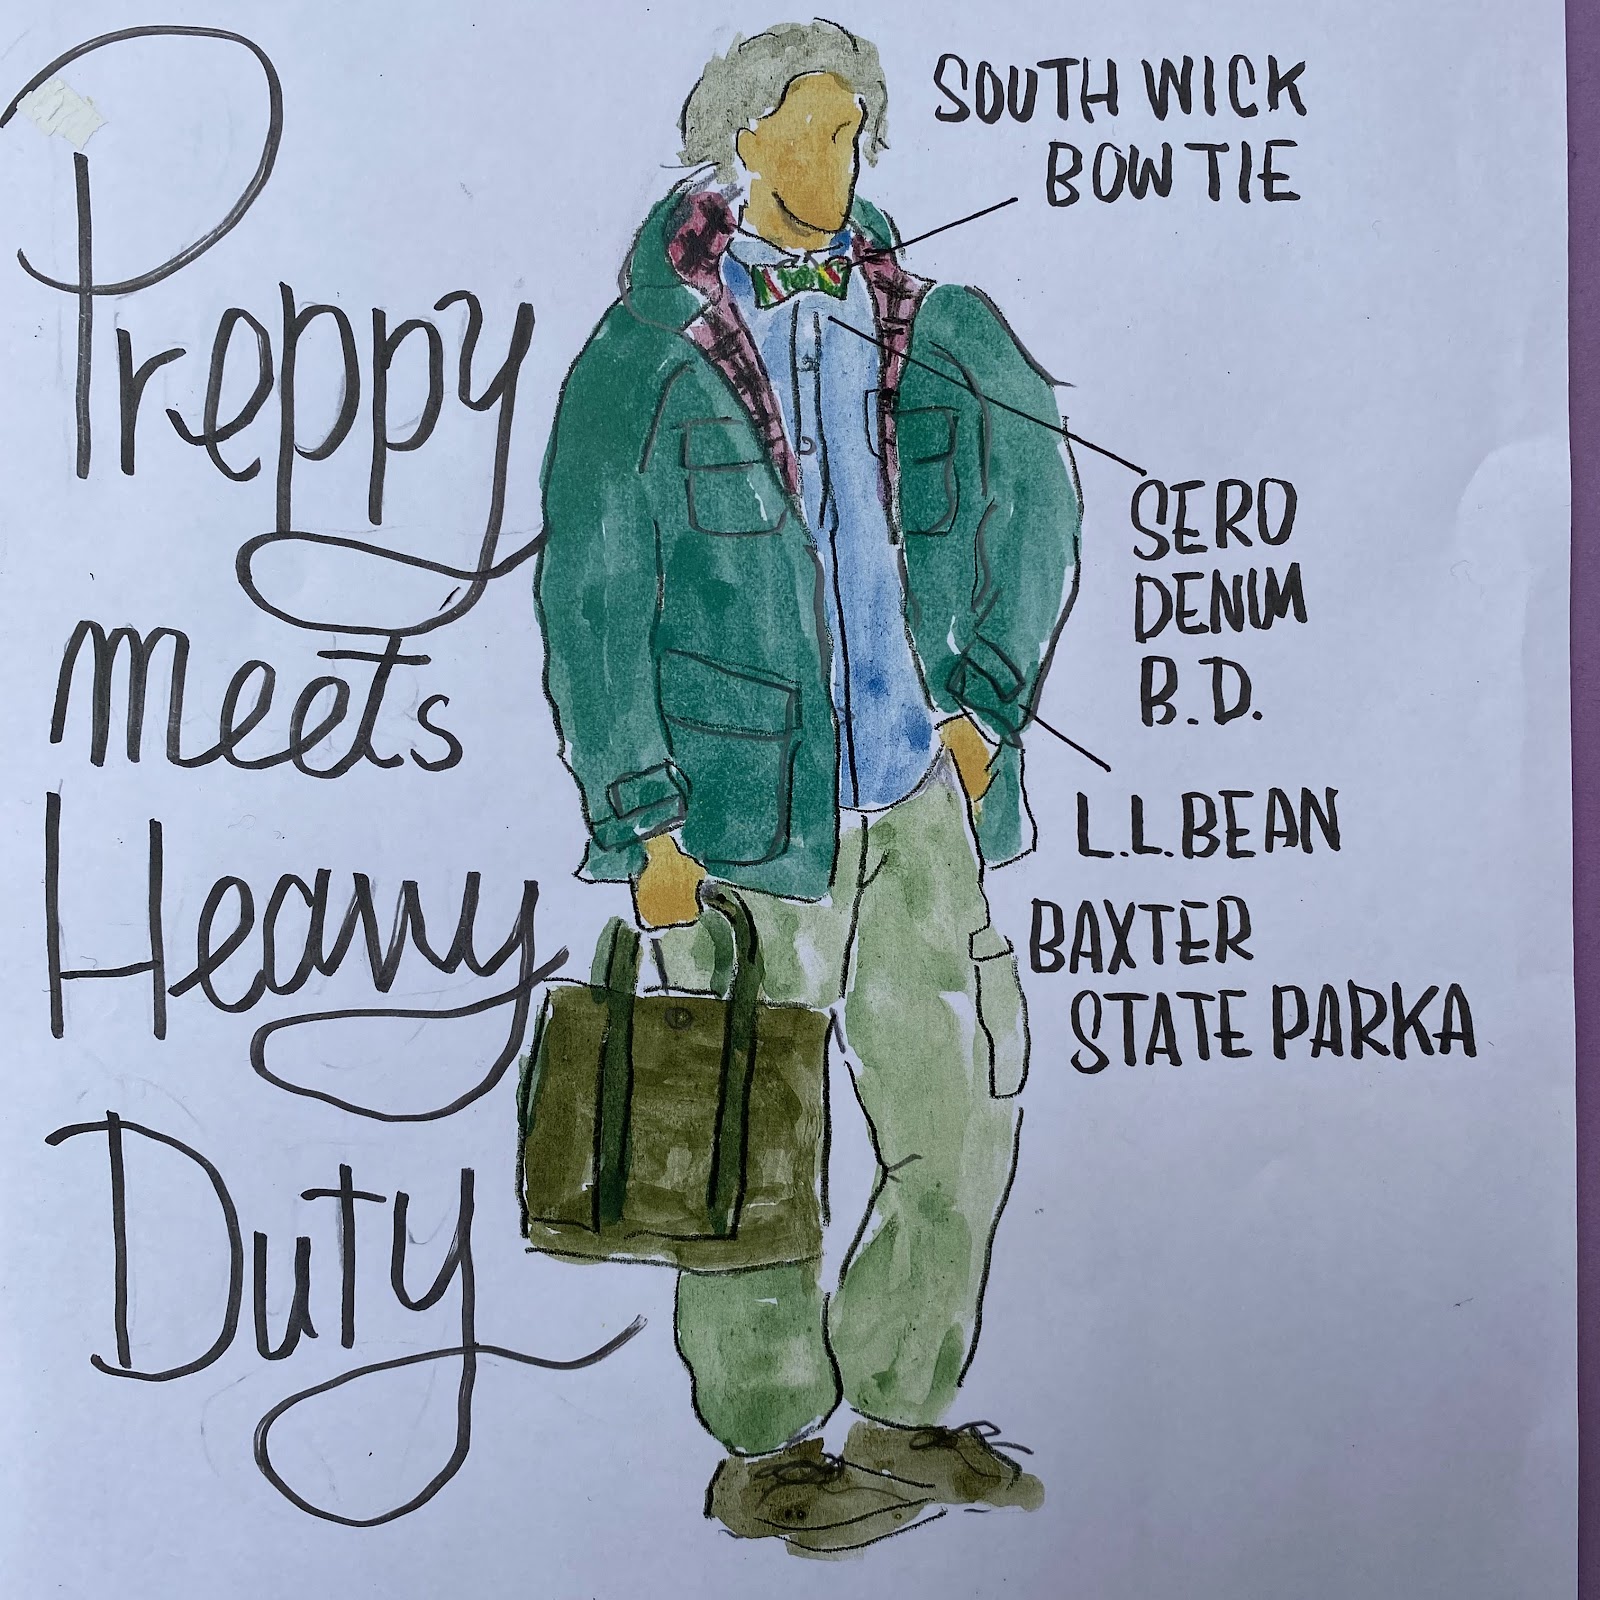 Preppy
meets
Heavy
Duty
SOUTHWICK
BOW TIE
SERO
DENIM
B.D.
L.L.BEAN
BAXTER
STATE PARKA